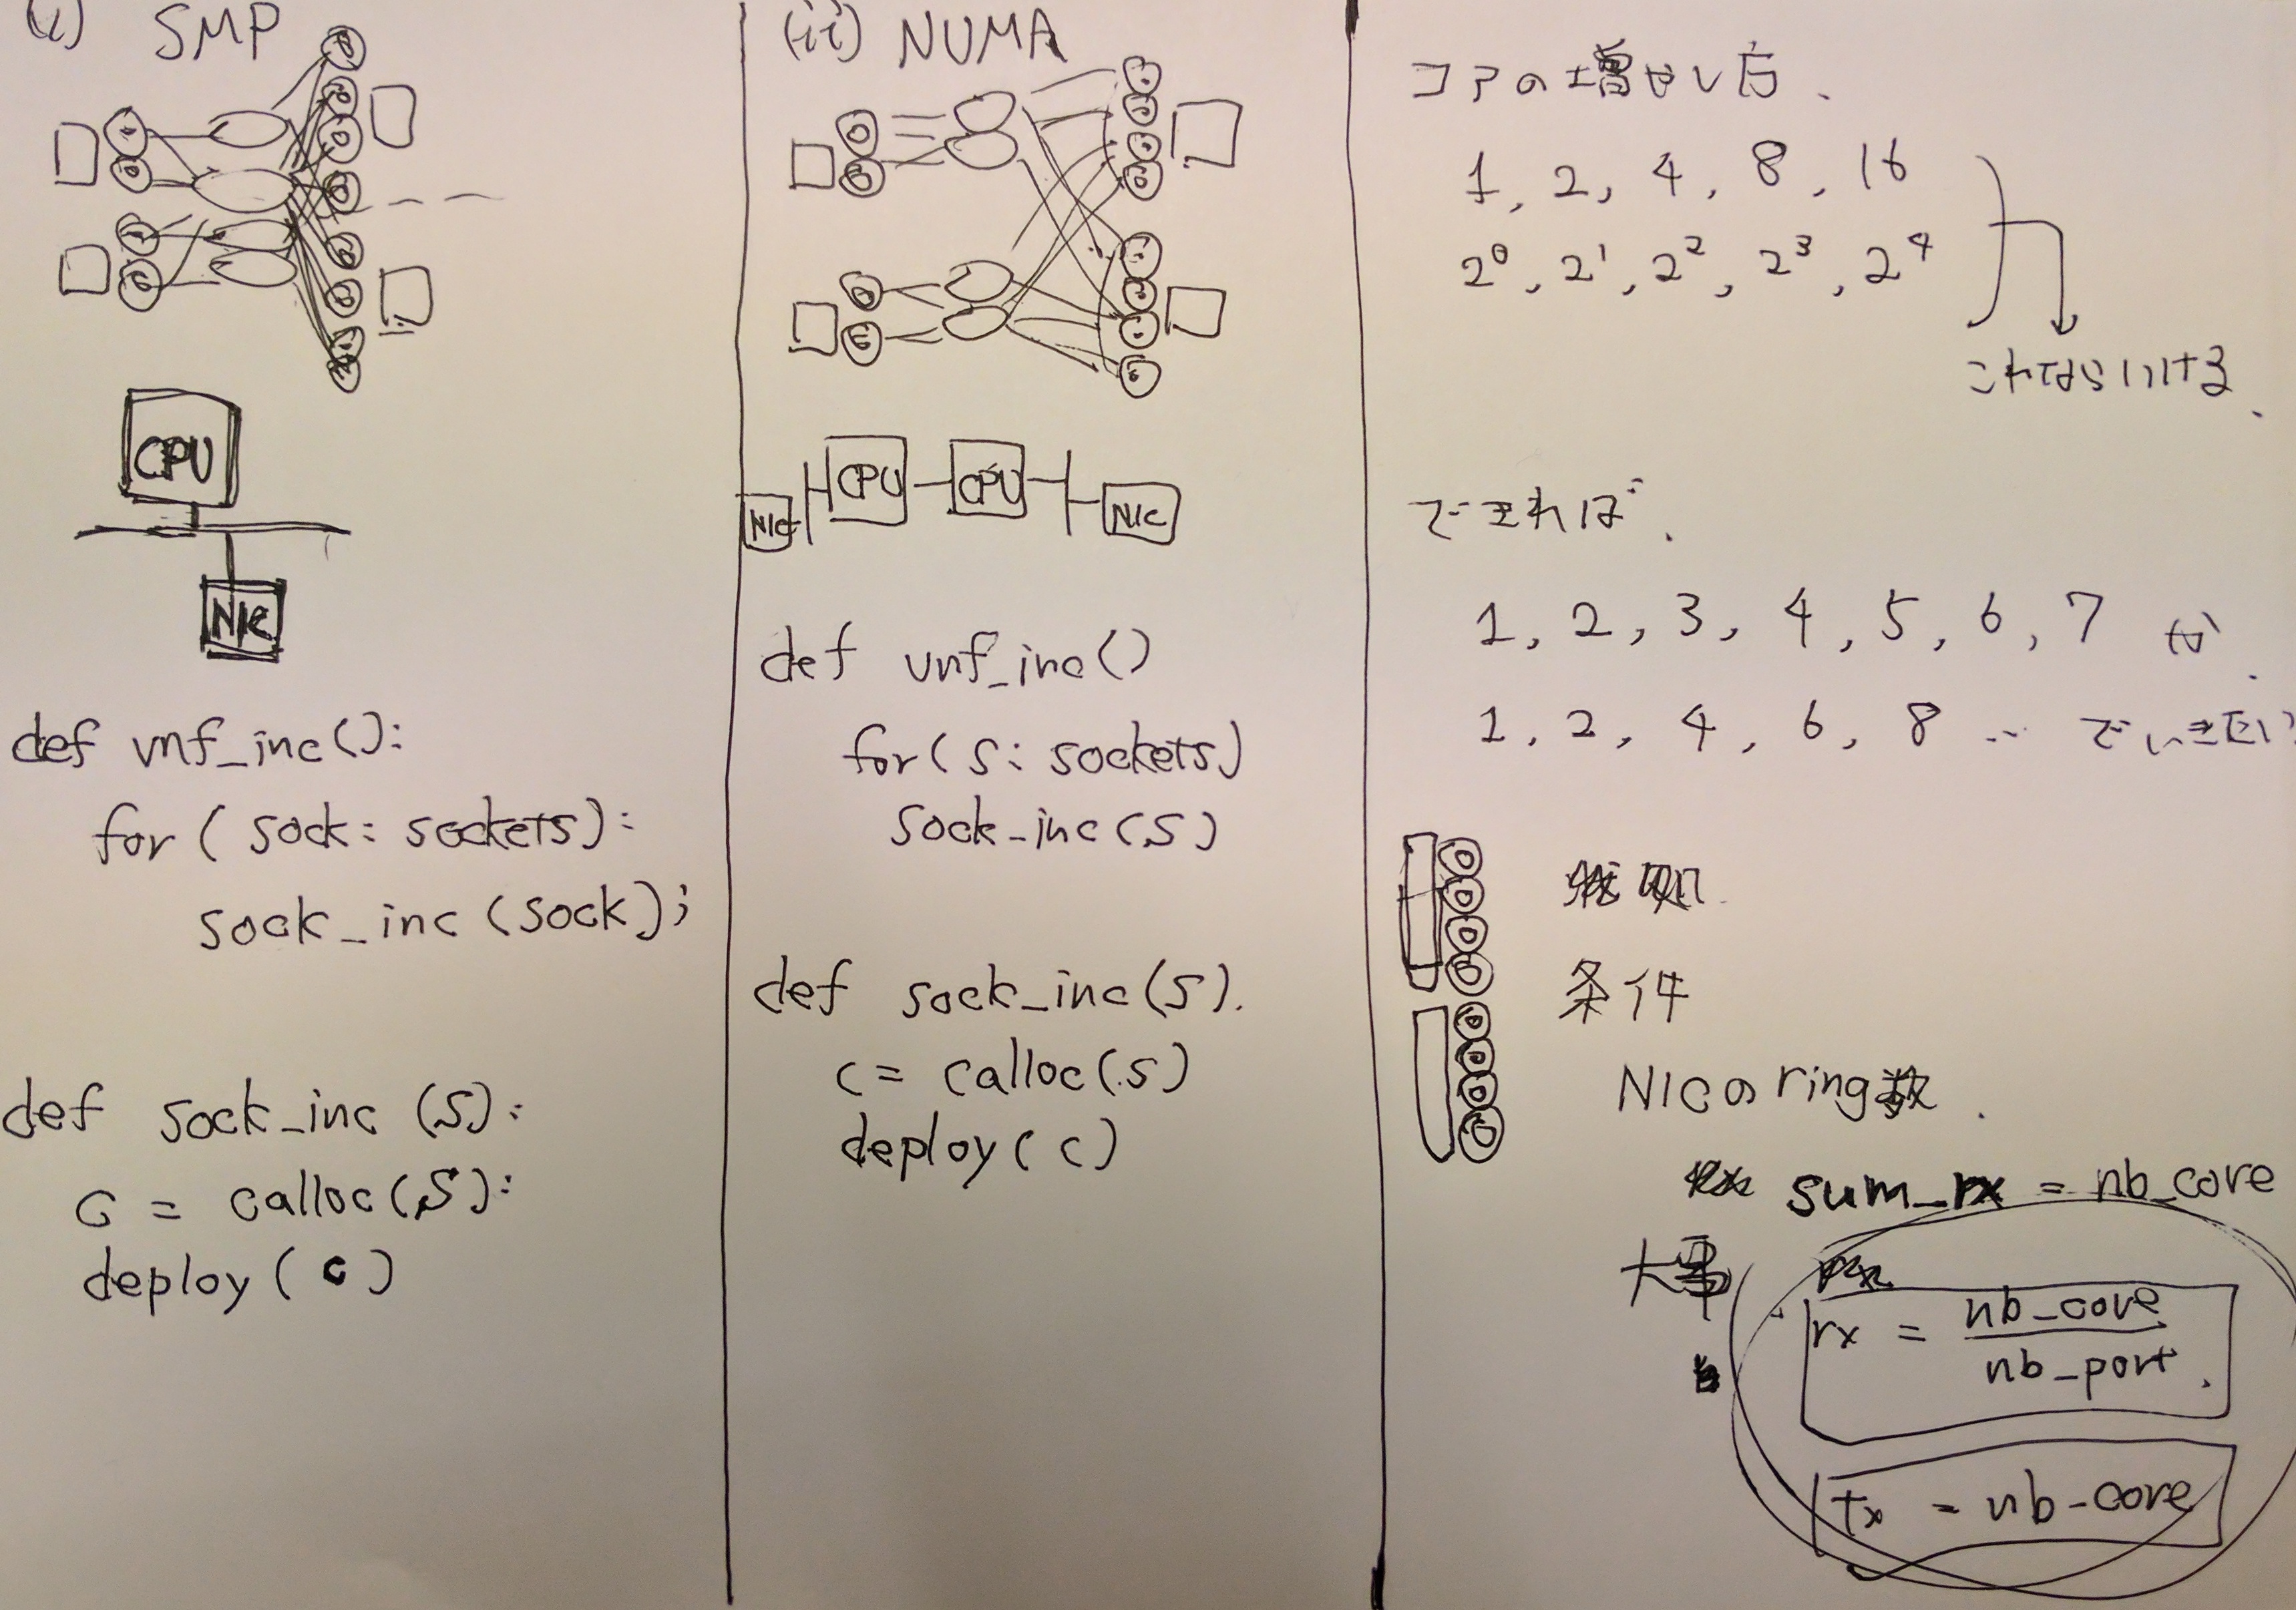 (i) SMP
CPU
NIC
def vnf_inc():
for ( sock : sockets):
sock_inc (sock);
def sock_inc (S):
C = calloc(S):
deploy( c )
(ii) NUMA
NIC CPU CPU NIC
def vnf_inc()
for( s : sockets)
sock_inc(S)
def sock_inc(S).
c = calloc(s)
deploy( c )
コアの増やし方、
1, 2, 4, 8, 16
2^0, 2^1, 2^2, 2^3, 2^4
これならいける、
できれば、
1, 2, 3, 4, 5, 6, 7 か、
1, 2, 4, 6, 8 … でいきたい
条件
NICのring数.
sum_rx = nb_core
大事
rx = nb_core / nb_port.
tx = nb_core